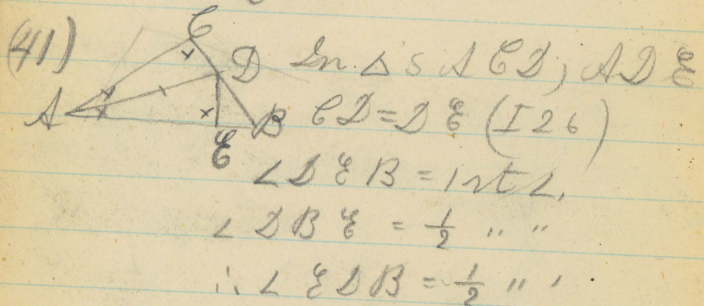 (41)
C
D
A
E
B
In Δs ACD, ADE
CD = DE (I 26)
∠DEB = 1 rt ∠.
∠DBE = ½ " "
∴ ∠EDB = ½ " "